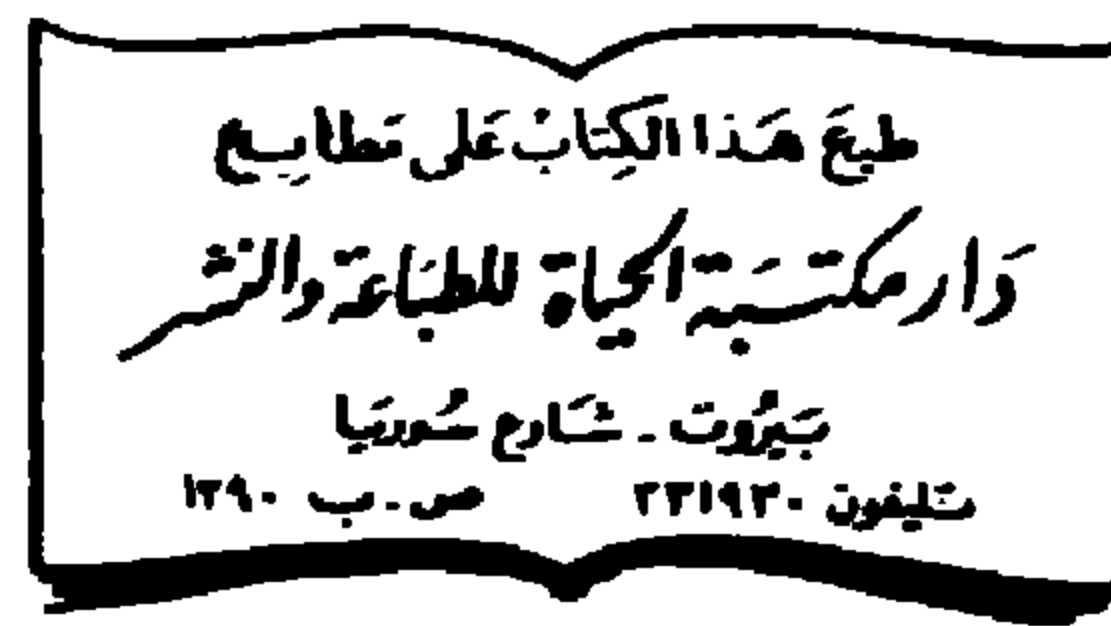 طبعَ هَذا الكِتابْ عَلى مَطابِع
دَار مكتبَة الحيَاة للطبَاعَة والنشر
بَيرُوت - شَارع سُوريَا
تَليفون ٢٣١٩٣٠ ص.ب ١٣٩٠